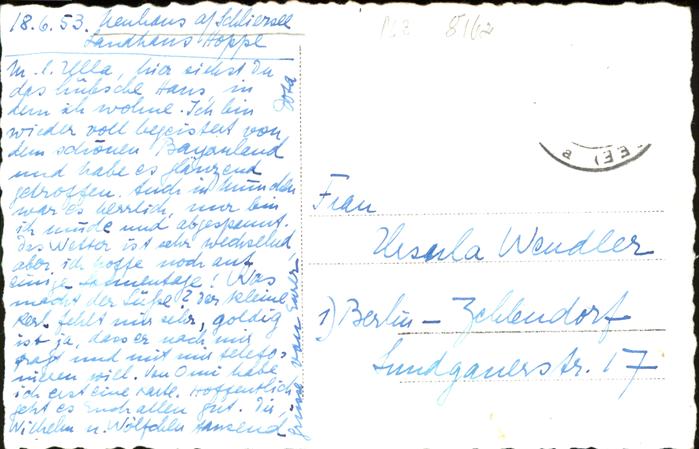 18.6.53. Neuhaus a/Schliersee
Landhaus Hoppe
M. l. Ulla, hier siehst Du
das hübsche Haus, in
dem ich wohne. Ich bin
wieder voll begeistert von
dem schönen Bayernland
und habe es glänzend
getroffen. Auch in München
war es herrlich, nur bin
ich müde und abgespannt.
Das Wetter ist sehr wechselnd
aber ich hoffe noch auf
einige Sonnentage! Was
macht der Süße? Der kleine
Kerl fehlt mir sehr, goldig
ist ja, dass er nach mir
fragt und mit mir telefo-
nieren will. Von Omi habe
ich erst eine Karte. Hoffentlich
geht es Euch allen gut. Dir,
Wilhelm u. Wölfchen tausend
Grüsse von Eurer
Dora
PLZ 8162
SEE) a
Frau
Ursula Wendler
1) Berlin - Zehlendorf
Sundgauerstr. 17